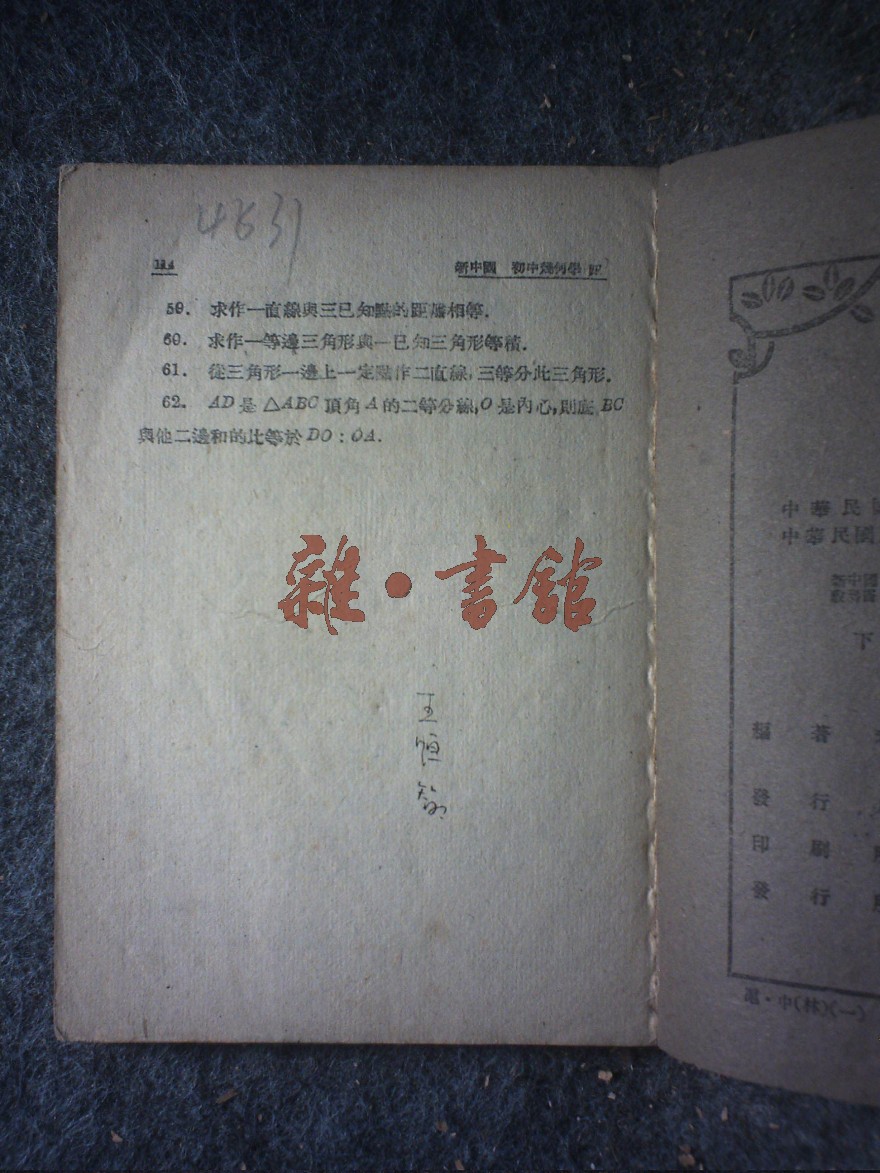 4631
114
新中國 初中幾何學 下
59. 求作一直線與三已知點的距離相等.
60. 求作一等邊三角形與一已知三角形等積.
61. 從三角形一邊上一定點作二直線,三等分此三角形.
62. AD 是 △ABC 頂角 A 的二等分線,O 是內心,則底 BC
與他二邊和的比等於 DO : OA.
雜·書館
王恒
中華民國
中華民國
新中國
下
編著
發行
印刷
發行